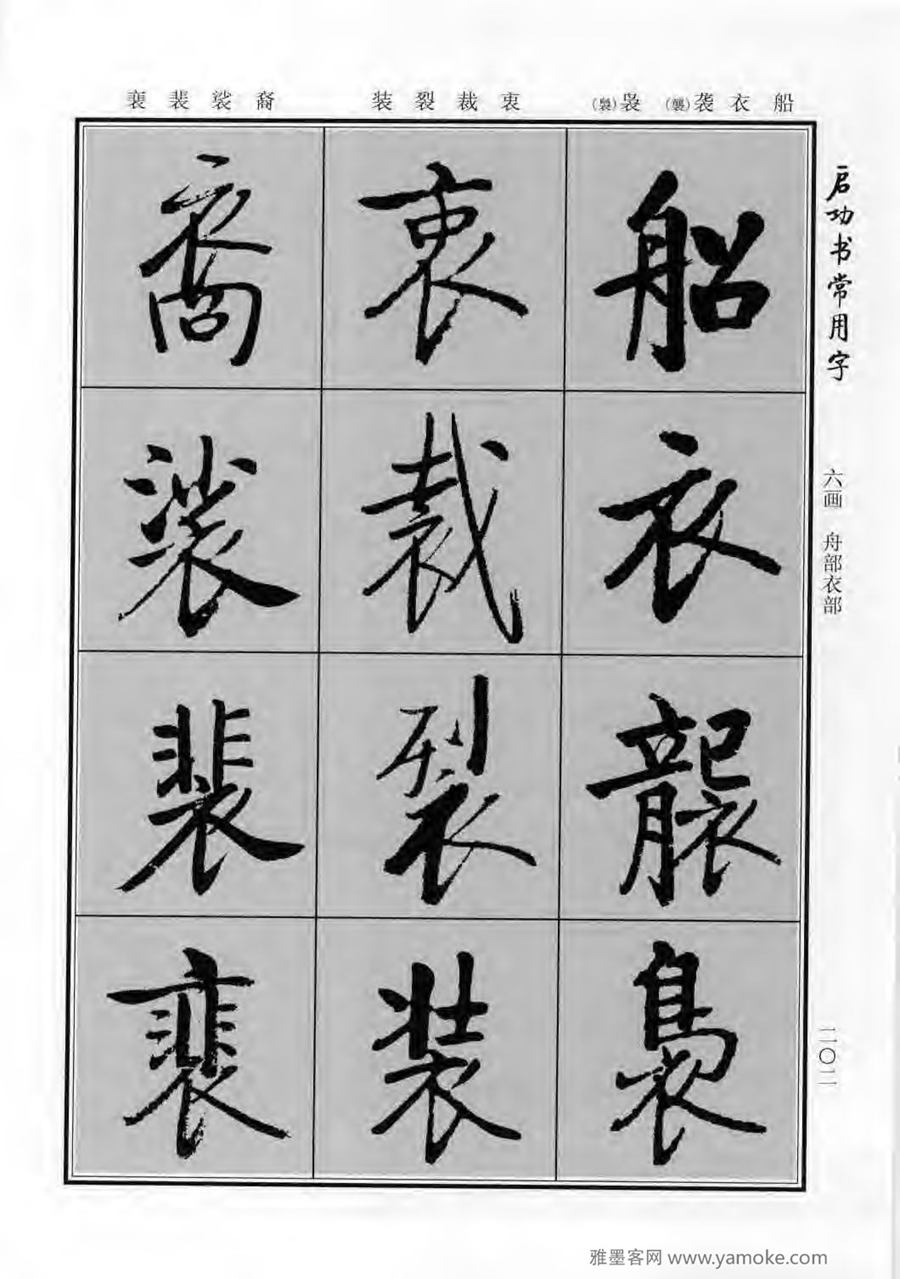 启功书常用字
六画 舟部衣部
二〇二
船衣袭(襲)袅(裊)
衷裁裂装
裔裟裴裵
船
衣
襲
裊
衷
裁
裂
装
裔
裟
裴
裵
雅墨客网 www.yamoke.com